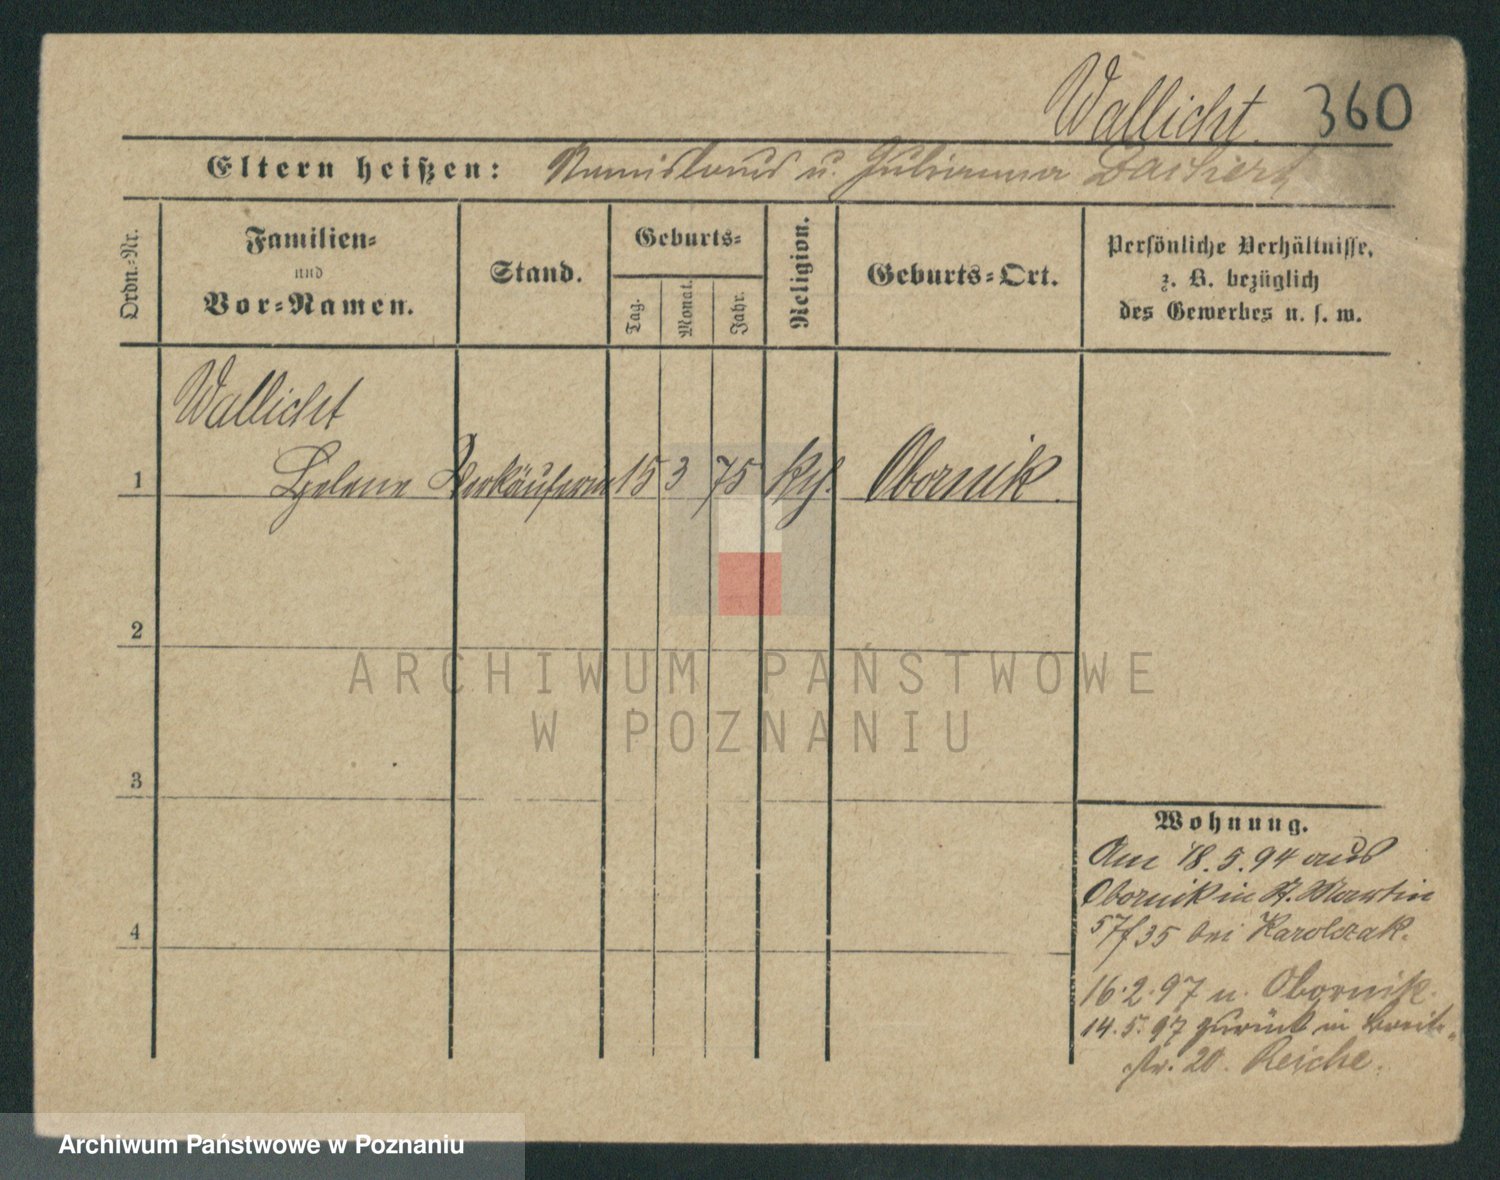 Wallicht. 360
Eltern heißen: Stanislaus u. Julianna
Ordn.-Nr.
Familien-
und
Vor-Namen.
Stand.
Geburts-
Tag.
Monat.
Jahr.
Religion.
Geburts-Ort.
Persönliche Verhältnisse,
z. B. bezüglich
des Gewerbes u. s. w.
Wallicht
1 Helene Verkäuferin 15 3 75 kth. Obornik.
2
ARCHIWUM PAŃSTWOWE
W POZNANIU
3
4
Wohnung.
Am 18.5.94 aus
Obornik in St. Martin
57/35 bei Karolczak.
16.2.97 n. Obornik.
14.5.97 zurück in Breite-
str. 20. Reiche.
Archiwum Państwowe w Poznaniu